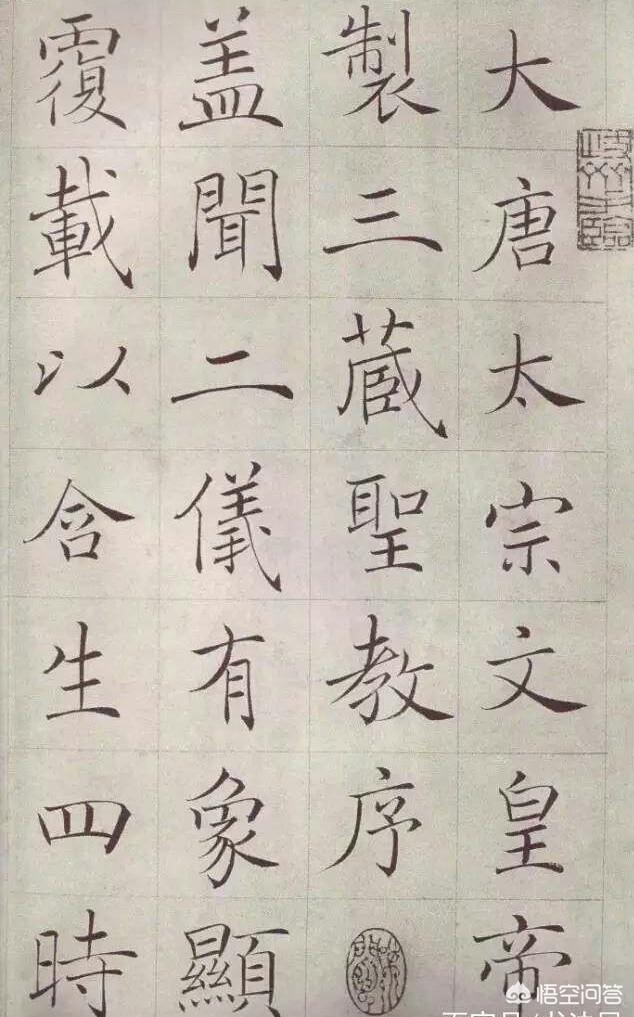 大唐太宗文皇帝
製三蔵聖教序
盖聞二儀有象顯
覆載以含生四時
悟空问答